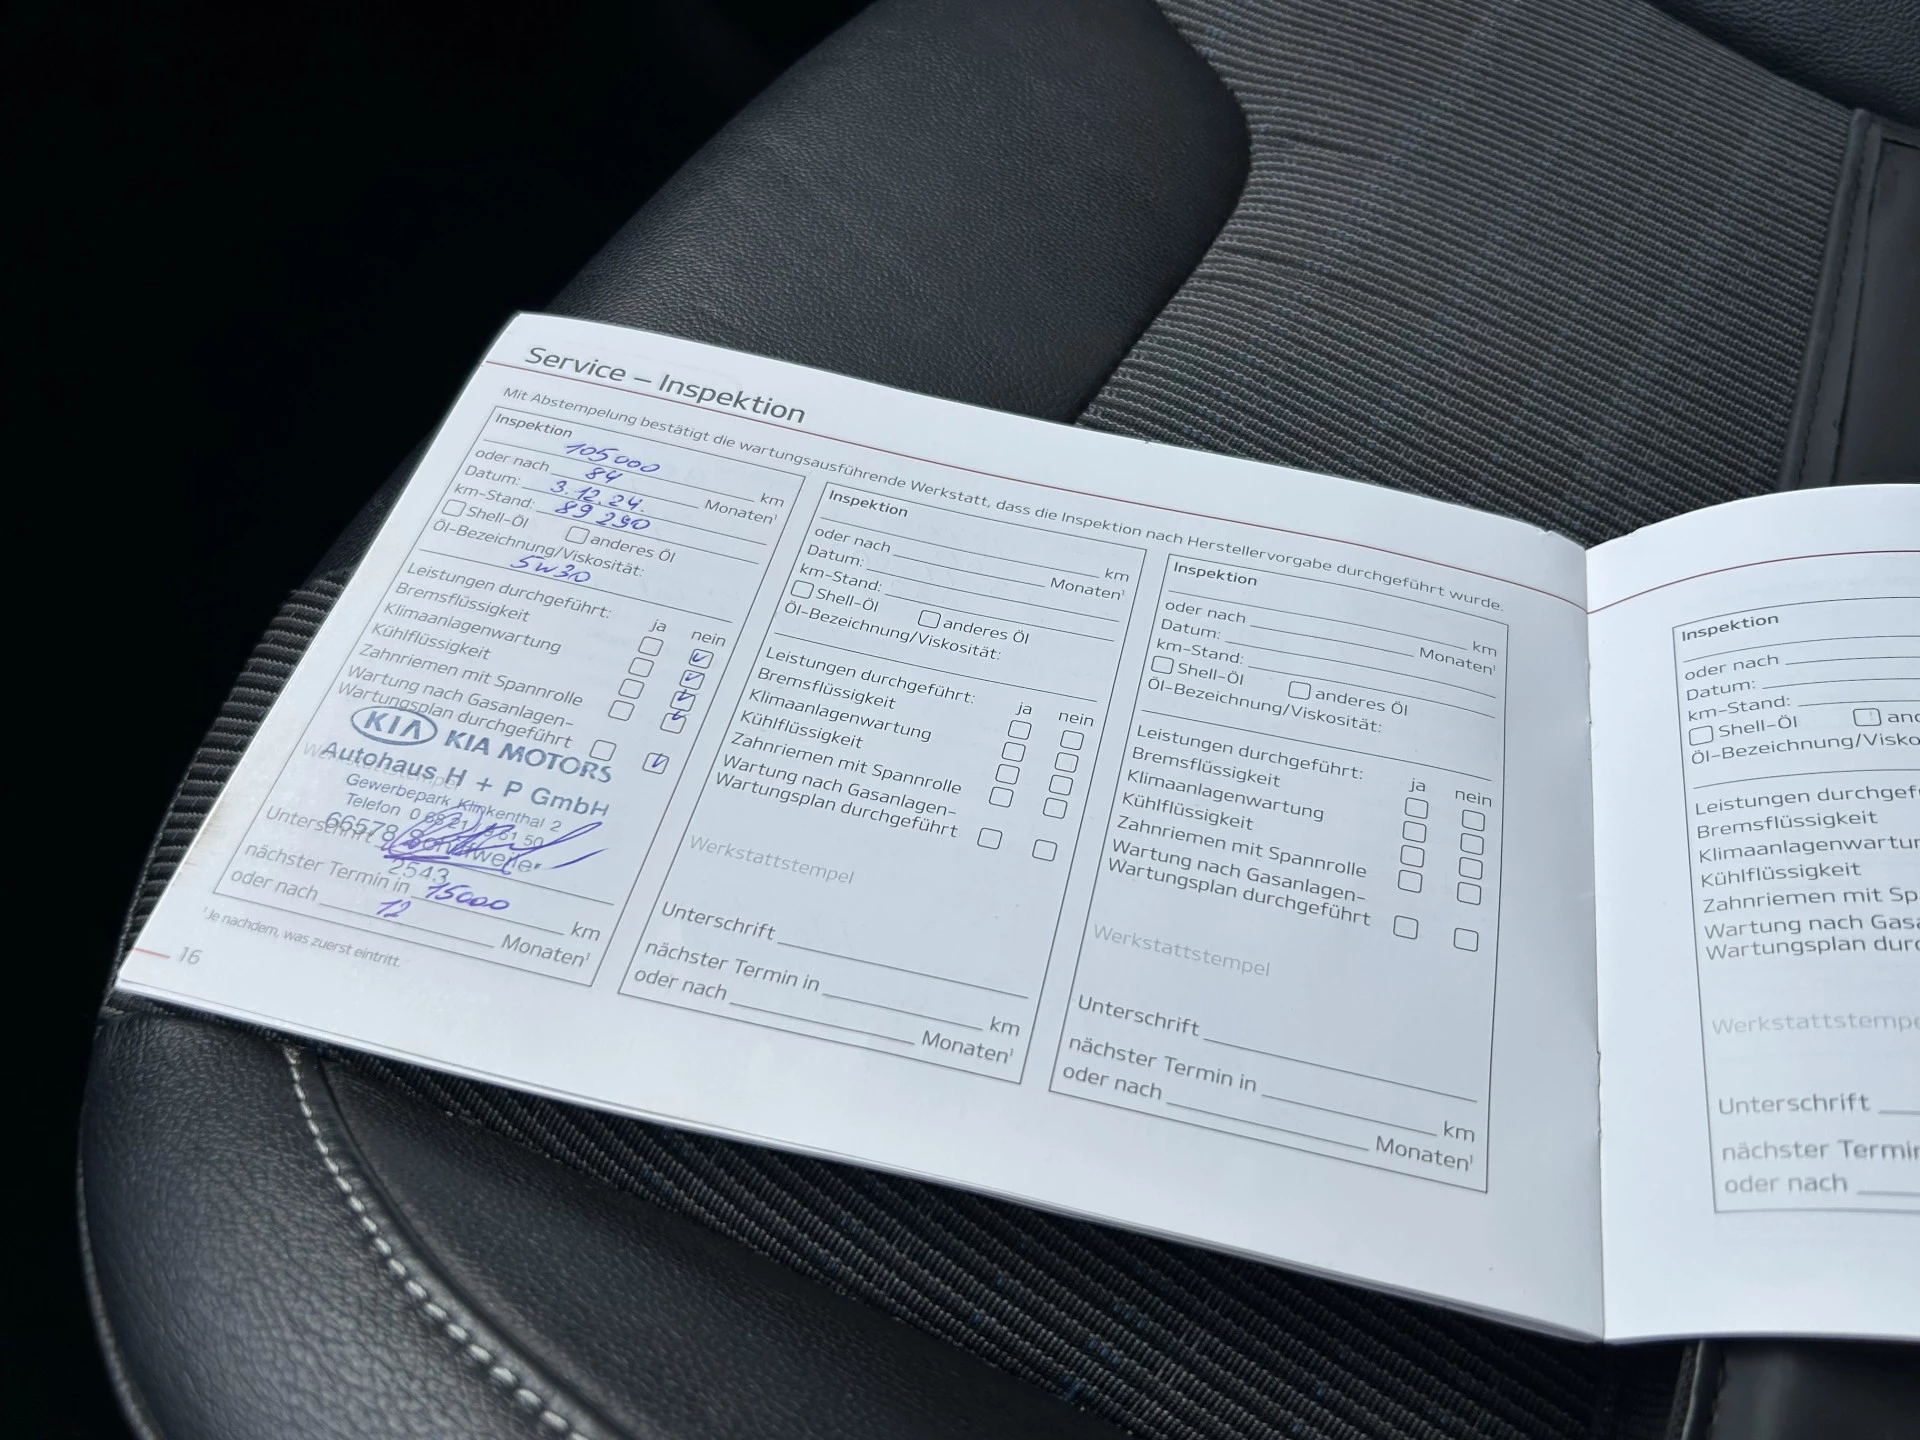 Service – Inspektion
Mit Abstempelung bestätigt die wartungsausführende Werkstatt, dass die Inspektion nach Herstellervorgabe durchgeführt wurde.
Inspektion
105000 km
oder nach 84 Monaten¹
Datum: 3.12.24.
km-Stand: 89290
Shell-Öl anderes Öl
Öl-Bezeichnung/Viskosität:
5W30
Leistungen durchgeführt: ja nein
Bremsflüssigkeit
Klimaanlagenwartung
Kühlflüssigkeit
Zahnriemen mit Spannrolle
Wartung nach Gasanlagen-
Wartungsplan durchgeführt
KIA KIA MOTORS
Autohaus H + P GmbH
Gewerbepark Klinkenthal 2
Telefon
66578
Unterschrift
2543
nächster Termin in 15000 km
oder nach 12 Monaten¹
¹Je nachdem, was zuerst eintritt.
16
Inspektion
km
oder nach Monaten¹
Datum:
km-Stand:
Shell-Öl anderes Öl
Öl-Bezeichnung/Viskosität:
Leistungen durchgeführt: ja nein
Bremsflüssigkeit
Klimaanlagenwartung
Kühlflüssigkeit
Zahnriemen mit Spannrolle
Wartung nach Gasanlagen-
Wartungsplan durchgeführt
Werkstattstempel
Unterschrift
nächster Termin in km
oder nach Monaten¹
Inspektion
km
oder nach Monaten¹
Datum:
km-Stand:
Shell-Öl anderes Öl
Öl-Bezeichnung/Viskosität:
Leistungen durchgeführt: ja nein
Bremsflüssigkeit
Klimaanlagenwartung
Kühlflüssigkeit
Zahnriemen mit Spannrolle
Wartung nach Gasanlagen-
Wartungsplan durchgeführt
Werkstattstempel
Unterschrift
nächster Termin in km
oder nach Monaten¹
Inspektion
oder nach
Datum:
km-Stand:
Shell-Öl and
Öl-Bezeichnung/Visko
Leistungen durchgef
Bremsflüssigkeit
Klimaanlagenwartur
Kühlflüssigkeit
Zahnriemen mit Sp
Wartung nach Gas
Wartungsplan durc
Werkstattstempe
Unterschrift
nächster Termin
oder nach